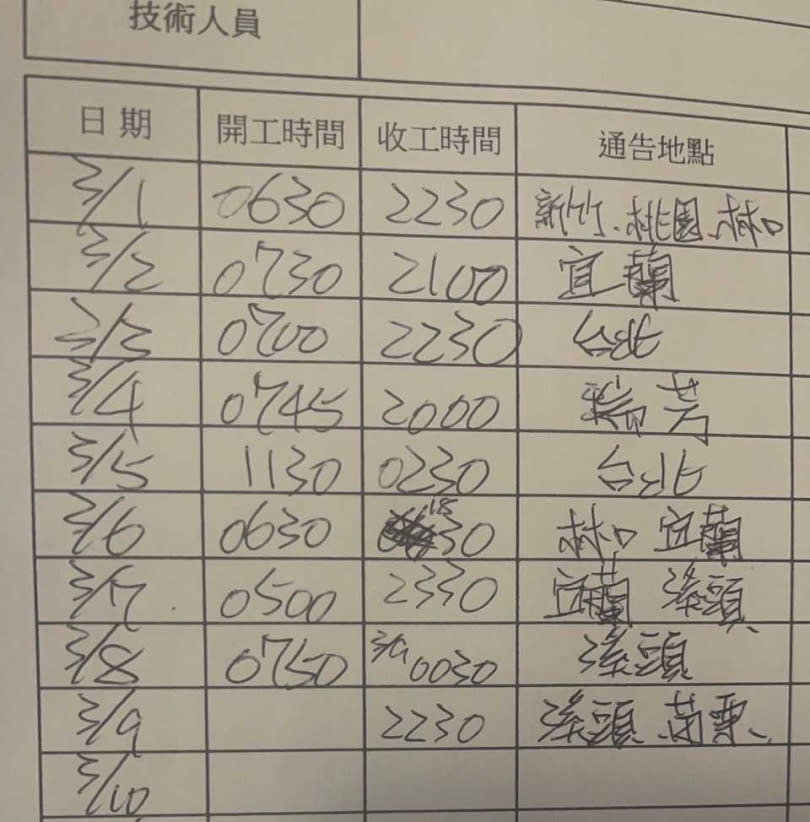 技術人員
日期 開工時間 收工時間 通告地點
3/1 0630 2230 新竹、桃園、林口
3/2 0730 2100 宜蘭
3/3 0700 2230 台北
3/4 0745 2000 瑞芳
3/5 1130 0230 台北
3/6 0630 1830 林口 宜蘭
3/7 0500 2330 宜蘭 溪頭、
3/8 0750 3/9 0030 溪頭
3/9 2230 溪頭、苗栗、
3/10